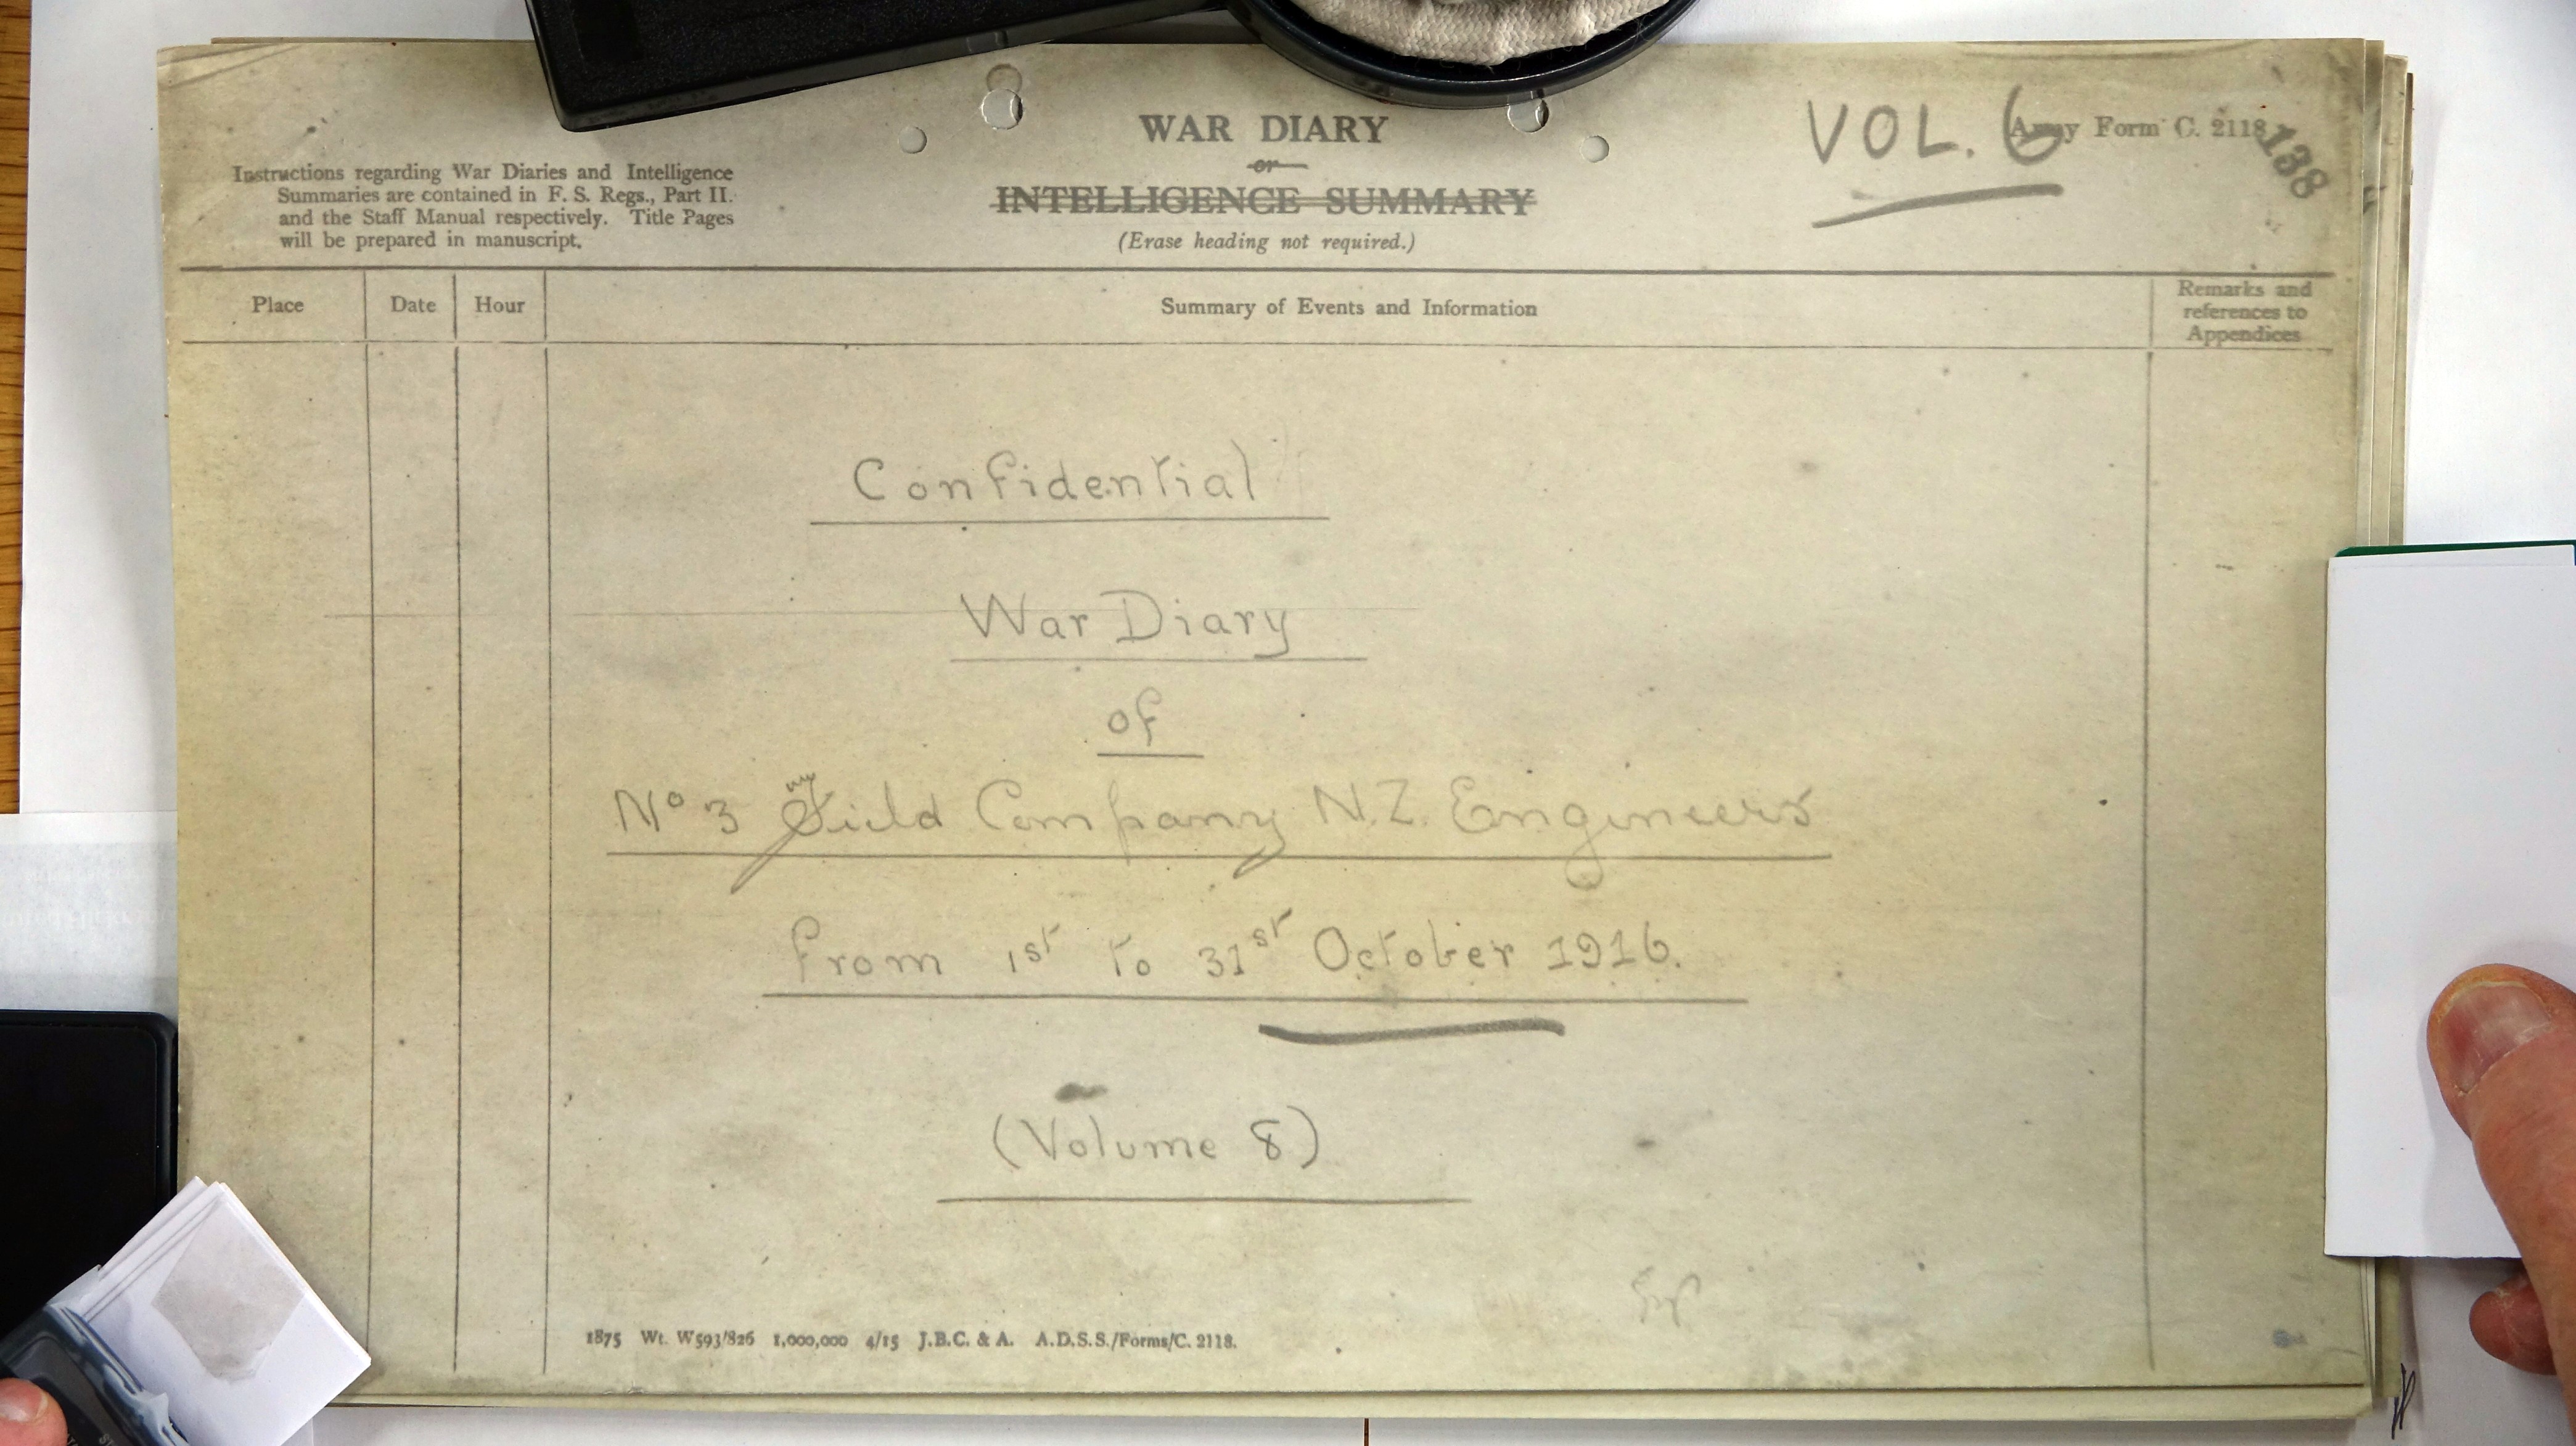 WAR DIARY
or
INTELLIGENCE SUMMARY
(Erase heading not required.)
Instructions regarding War Diaries and Intelligence
Summaries are contained in F. S. Regs., Part II.
and the Staff Manual respectively. Title Pages
will be prepared in manuscript.
VOL. 6
Army Form C. 2118
138
Place Date Hour Summary of Events and Information Remarks and
references to
Appendices
Confidential
War Diary
of
No 3 Field Company N.Z. Engineers
From 1st to 31st October 1916.
(Volume 8)
1875 Wt. W593/826 1,000,000 4/15 J.B.C. & A. A.D.S.S./Forms/C. 2118.